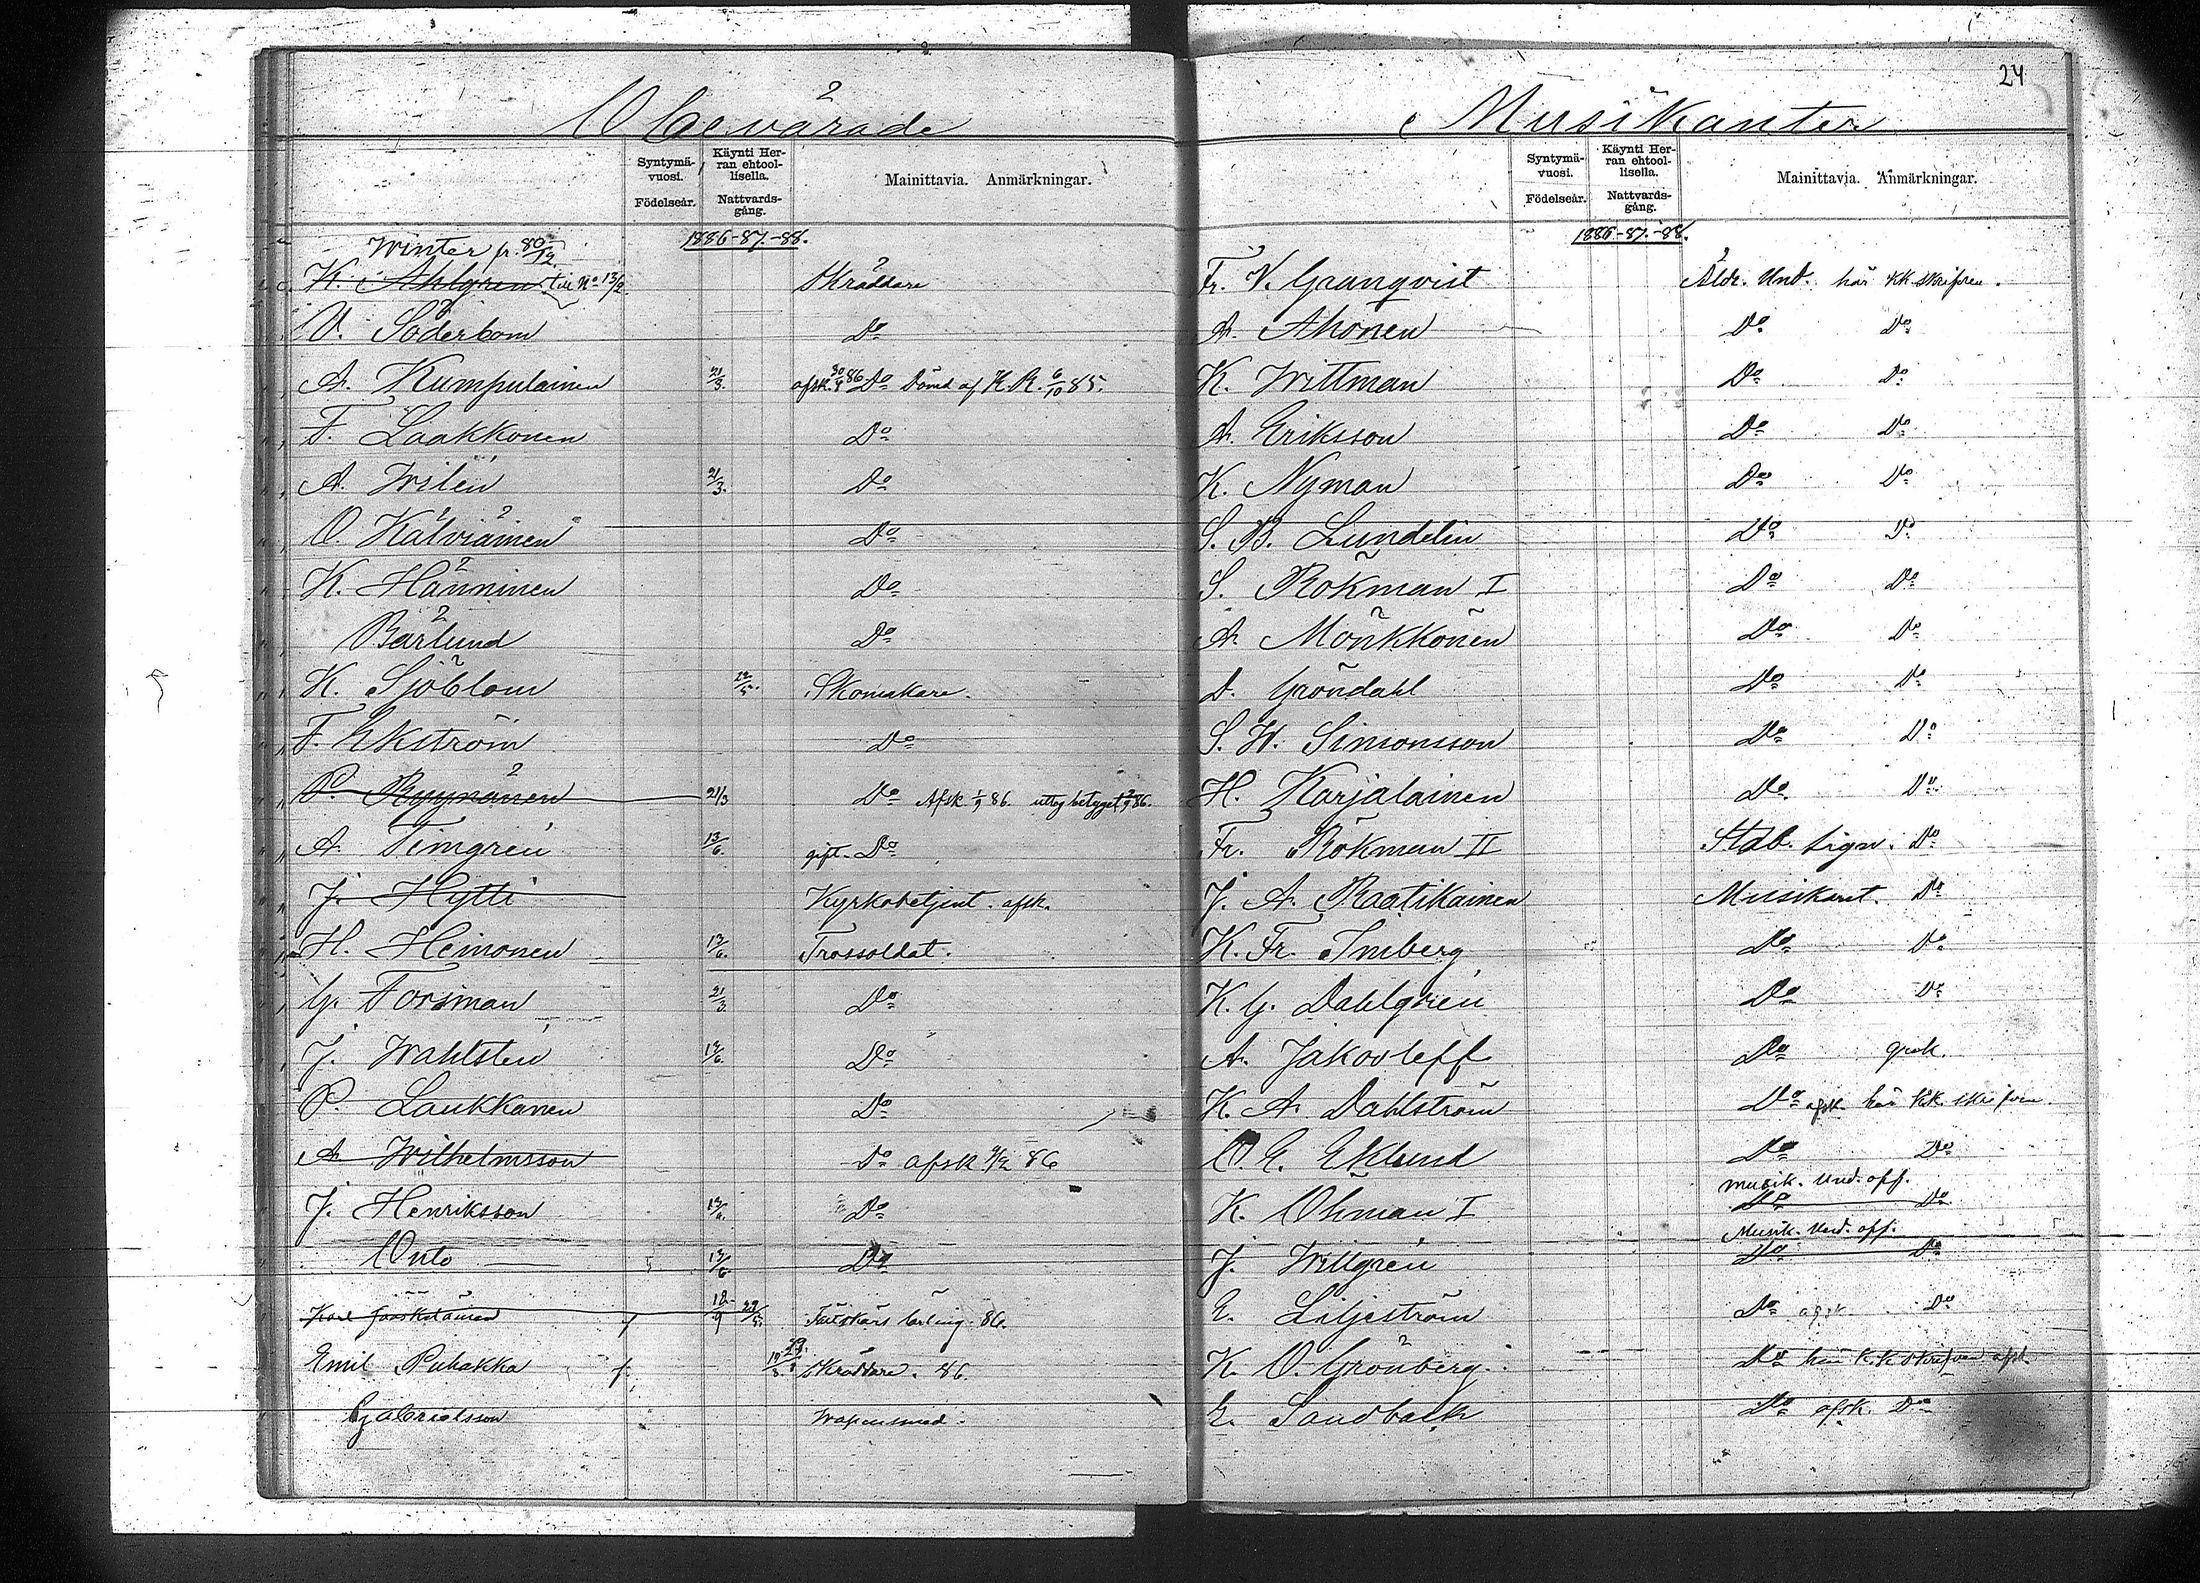 Obevärade
Syntymä-vuosi. Födelseår.
Käynti Herran ehtoollisella. Nattvardsgång.
Mainittavia. Anmärkningar.
1886-87.-88.
Winter fr. 80/12
K. Ahlgren till No 13/2 Skräddare
V. Söderbom Do
A. Kumpulainen 21/3. afsk. 30/4 86 Do Dömd af K. R. 6/10 85.
F. Laakkonen Do
A. Wilén 21/3. Do
O. Kälviäinen Do
K. Hänninen Do
Bärlund Do
K. Sjöblom Skomakare.
F. Ekström Do
P. Ryynänen 21/3 Do Afsk 1/9 86. uttog betyget 2/9 86.
A. Timgrén 13/6. gift. Do
J. Hytti Kyrkobetjent. afsk.
H. Heinonen 13/6. Trossoldat.
G. Forsman 21/3. Do
J. Wahlstén 13/6. Do
P. Laukkanen Do
A. Wilhelmsson Do afsk 86
J. Henriksson 13/6. Do
Outo 13/6. Do
Karl Jääskeläinen 12/9 Fältskärs lärling. 86.
Emil Puhakka Skräddare. 86.
Gabrielsson Wapensmed.
24
Musikanter
Syntymä-vuosi. Födelseår.
Käynti Herran ehtoollisella. Nattvardsgång.
Mainittavia. Anmärkningar.
1886-87.-88.
Fr. V. Granqvist Äldr. Und. här KK skrifven.
A. Ahonen Do Do
K. Wittman Do Do
A. Eriksson Do Do
K. Nyman Do Do
S. B. Lundelin Do Do
S. Rökman I Do Do
A. Mönkkönen Do Do
D. Gröndahl Do Do
S. W. Simonsson Do Do
H. Karjalainen Do Do
Fr. Rökman II Stab. sign. Do
J. A. Raatikainen Musikant. Do
K. Fr. Imberg Do Do
K. G. Dahlgrén Do Do
A. Jakovleff Do grek.
K. A. Dahlström Do afsk. här KK. skrifven.
O. E. Eklund Do Do
musik. und. off.
K. Öhman I Do Do
Musik. Und. off.
J. Willgrén Do Do
E. Liljeström Do afsk. Do
K. O. Grönberg Do här K.K skrifven afsk.
E. Sandback Do afsk. Do